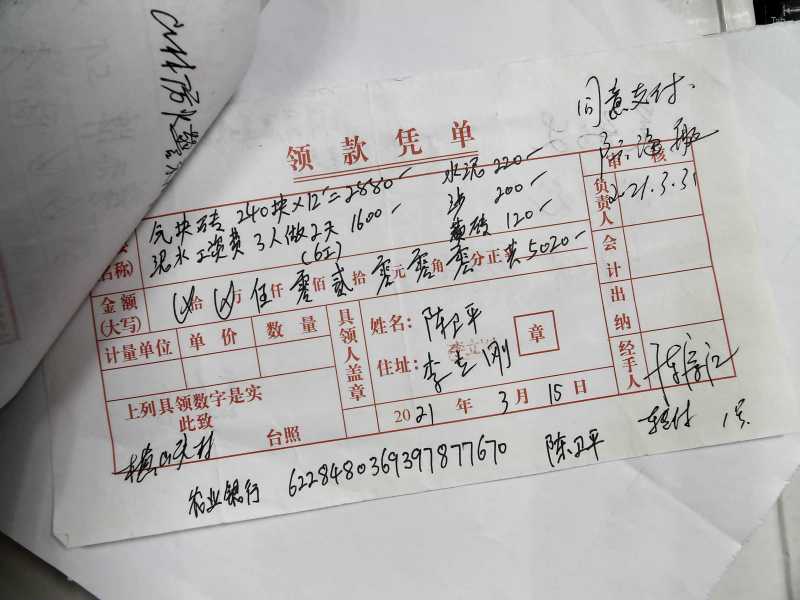 同意支付.
领款凭单
气块砖 240块×12=2880 水泥 220
泥水工资费 3人做2天 1600 沙 200
(6工) 黄砖 120
名称)
金额
(大写)
拾 万 伍仟 零佰 贰拾 零元 零角 零分正 5020
计量单位 单价 数量
上列具领数字是实
此致
台照
具领人盖章
姓名: 陈卫平
住址: 李立刚
章
2021 年 3 月 15 日
审核
负责人 2021.3.31
会计
出纳
经手人
农业银行 6228480369397877670 陈卫平 转付